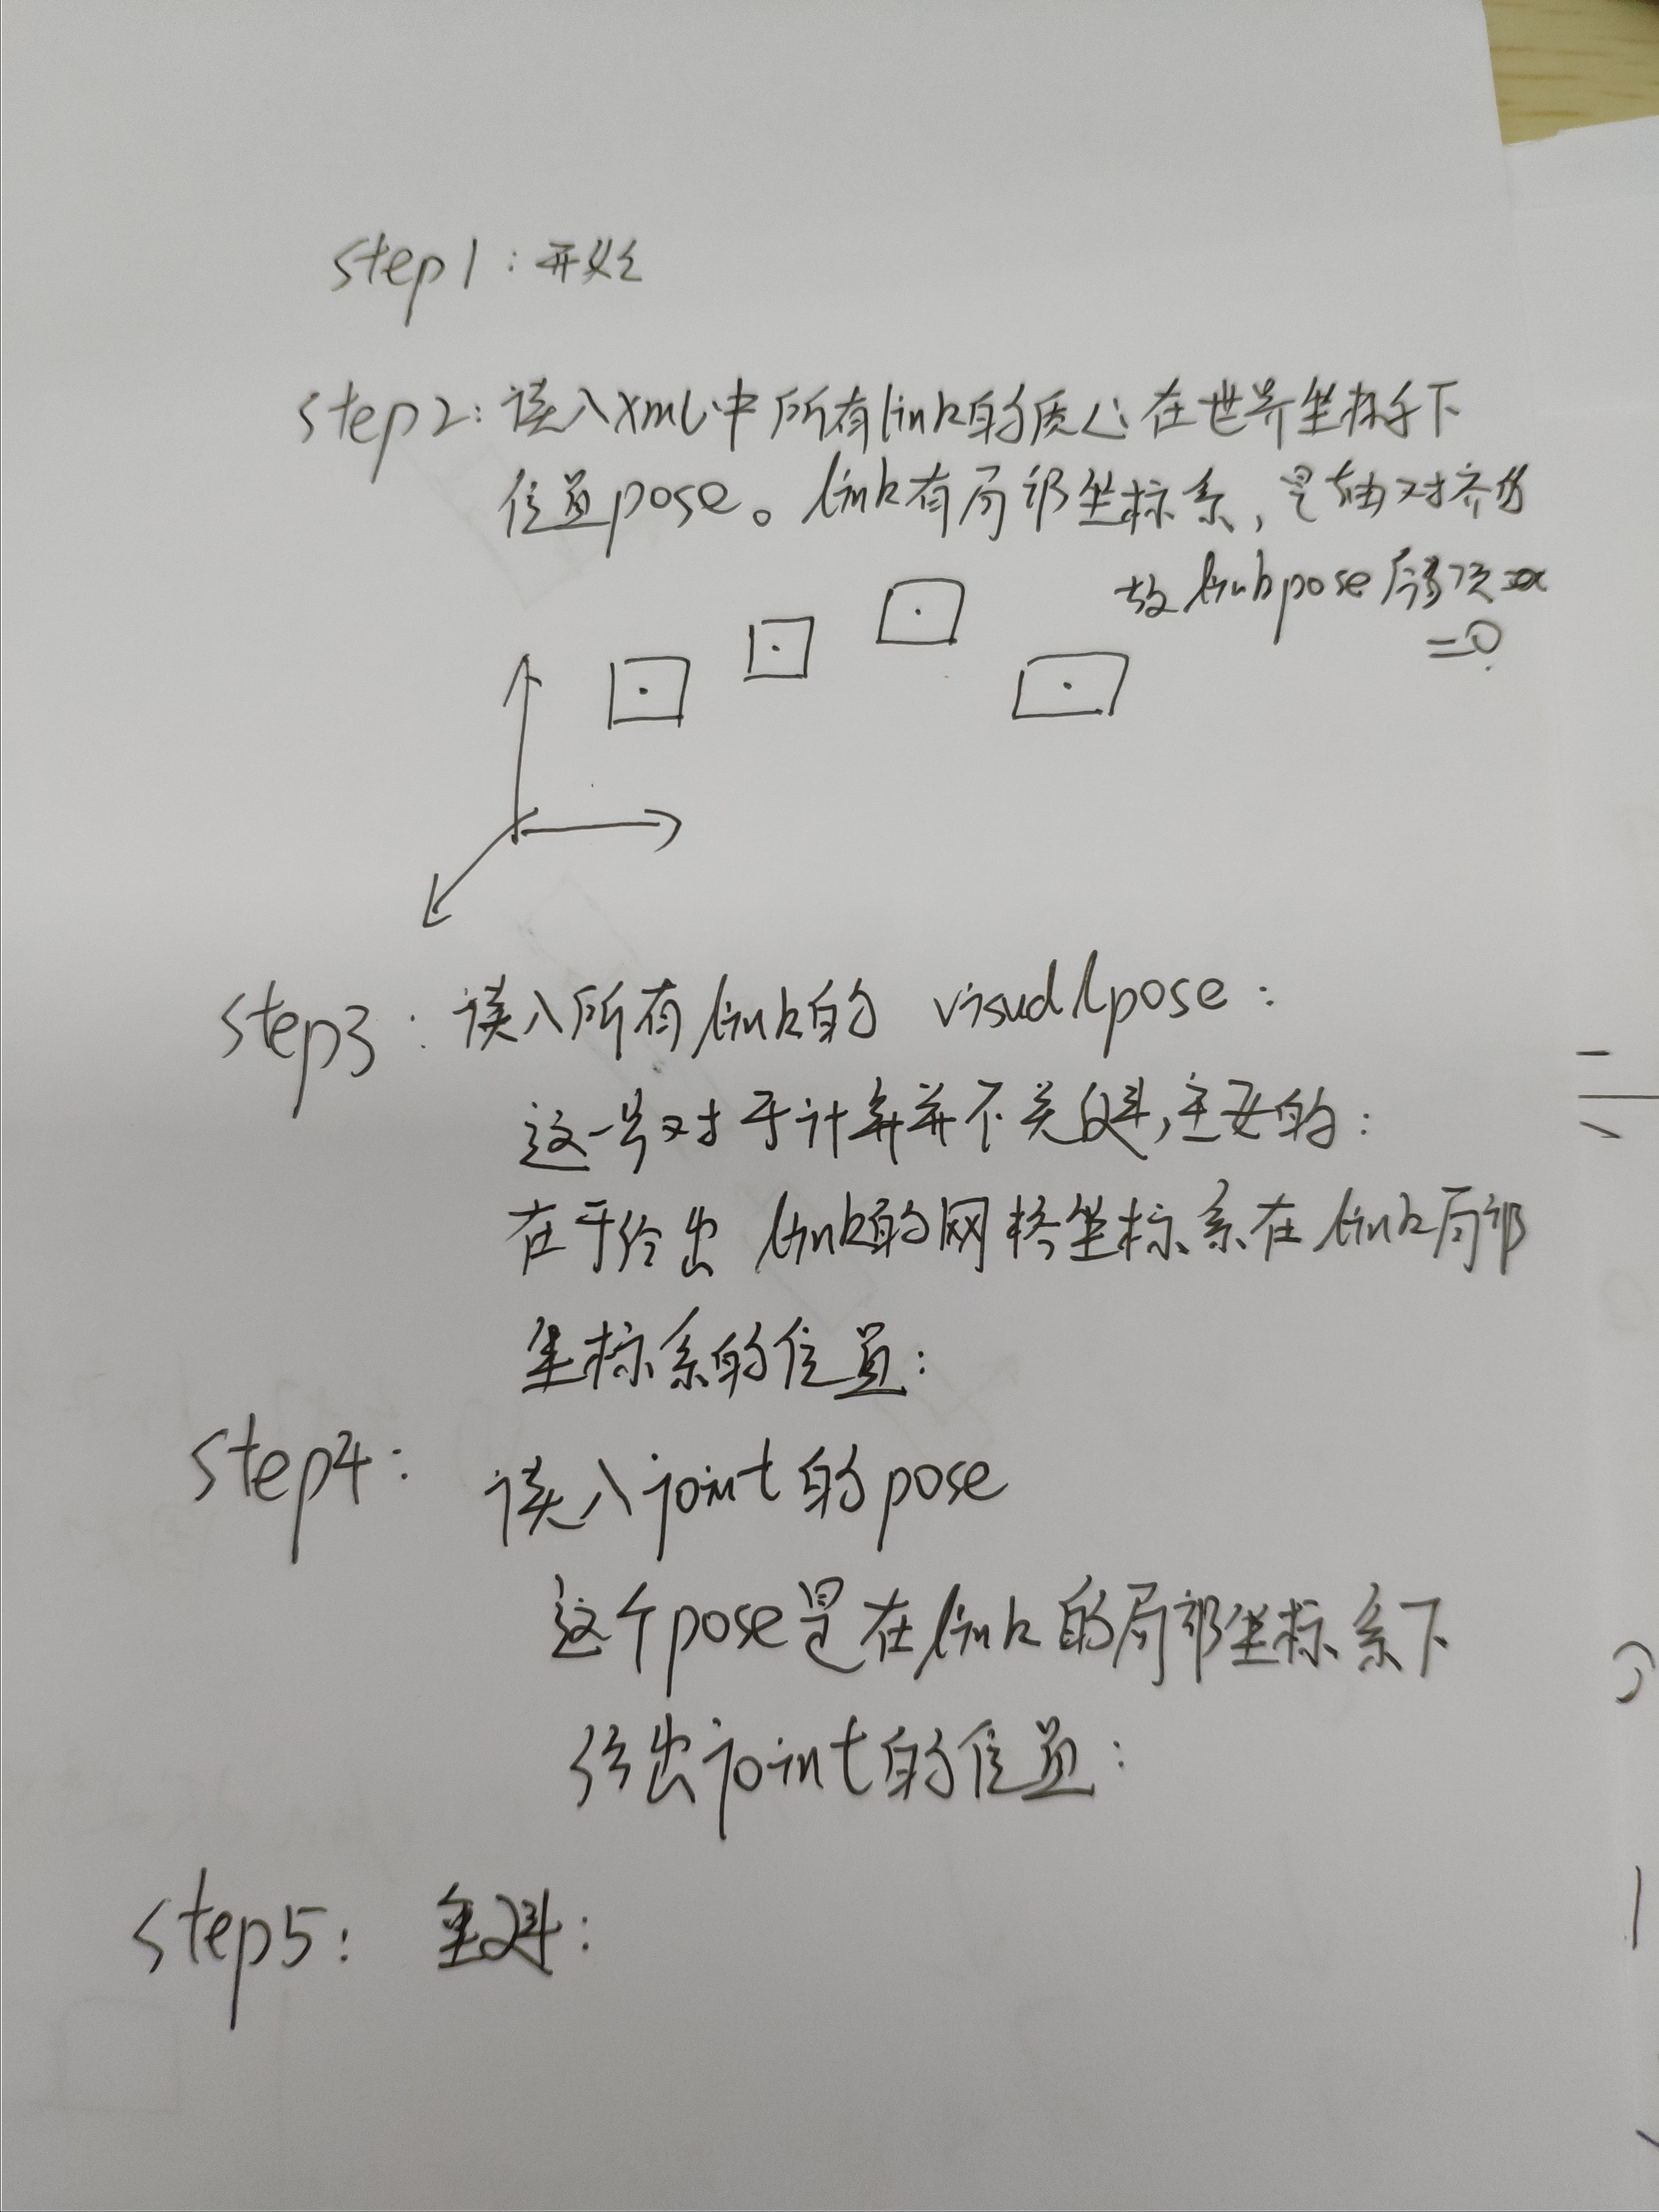 step1：开始
step2：读入xml中所有link的质心在世界坐标系下
位置pose。link有局部坐标系，是轴对齐的
故linkpose后3项
=0
step3：读入所有link的 visualpose：
这一步对于计算并不关键，主要的：
在于给出 link的网格坐标系在link局部
坐标系的位置：
step4：读入joint的pose
这个pose是在link的局部坐标系下
给出joint的位置：
step5：